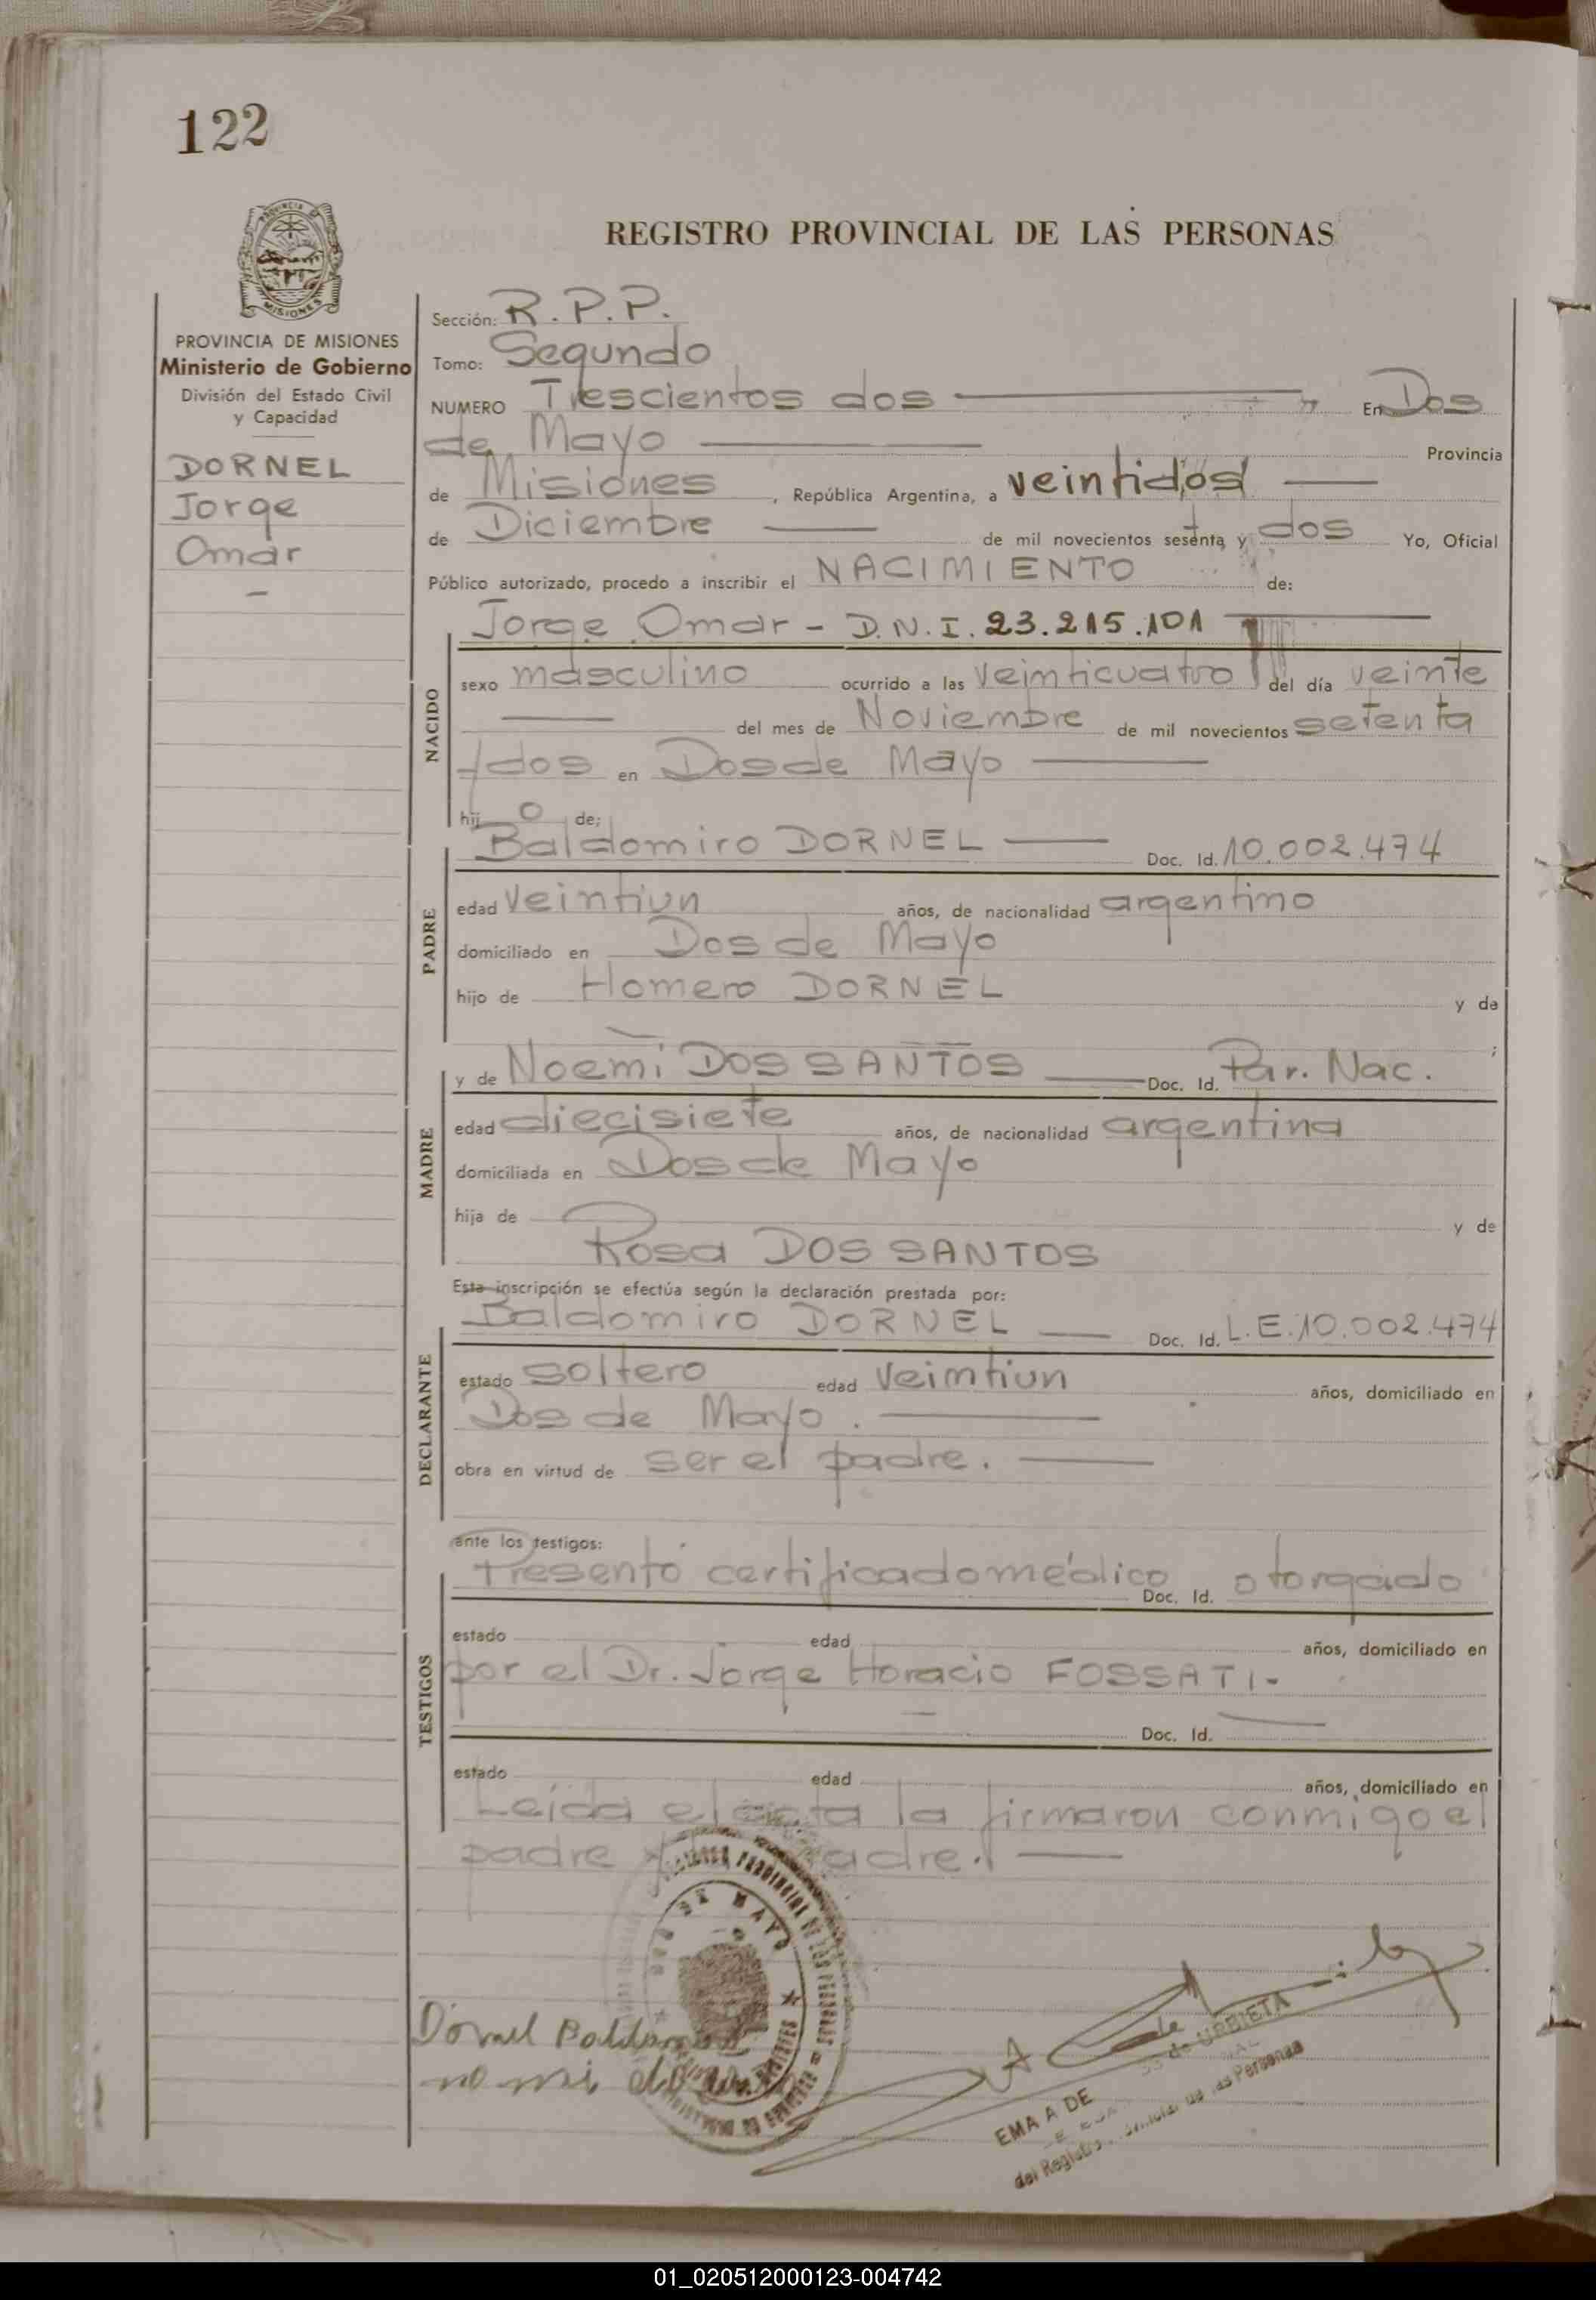 122
REGISTRO PROVINCIAL DE LAS PERSONAS
PROVINCIA DE MISIONES
Ministerio de Gobierno
División del Estado Civil
y Capacidad
DORNEL
Jorge
Omar
Sección: R.P.P.
Tomo: Segundo
NUMERO Trescientos dos En Dos
de Mayo Provincia
de Misiones, República Argentina, a veintidós
de Diciembre de mil novecientos sesenta y dos Yo, Oficial
Público autorizado, procedo a inscribir el NACIMIENTO de:
Jorge Omar - D.N.I. 23.215.101
NACIDO
sexo masculino ocurrido a las veinticuatro del día veinte
del mes de Noviembre de mil novecientos setenta
y dos en Dos de Mayo
hij o de:
Baldomiro DORNEL Doc. Id. 10.002.474
PADRE
edad veintiun años, de nacionalidad argentino
domiciliado en Dos de Mayo
hijo de Homero DORNEL y de
;
y de Noemi DOS SANTOS Doc. Id. Par. Nac.
MADRE
edad diecisiete años, de nacionalidad argentina
domiciliada en Dos de Mayo
hija de y de
Rosa DOS SANTOS
Esta inscripción se efectúa según la declaración prestada por:
Baldomiro DORNEL Doc. Id. L.E. 10.002.474
DECLARANTE
estado soltero edad veintiun años, domiciliado en
Dos de Mayo.
obra en virtud de ser el padre.
ante los testigos:
Presentó certificado médico Doc. Id. otorgado
TESTIGOS
estado edad años, domiciliado en
por el Dr. Jorge Horacio FOSSATI-
Doc. Id.
estado edad años, domiciliado en
Leída el acta la firmaron conmigo el
padre y la madre.
DOS DE MAYO
MISIONES
Dornel
EMA A DE URBIETA
del Registro Provincial de las Personas
01_020512000123-004742